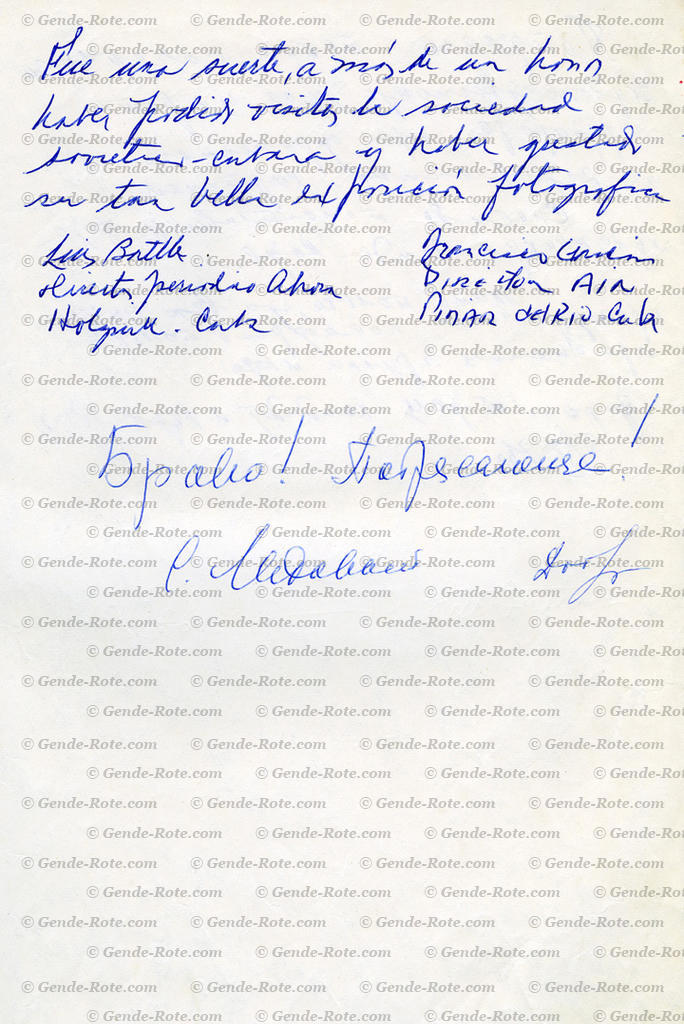 Fue una suerte, a más de un honor
haber podido visitar la sociedad
sovietica-cubana y haber gustado
su tan bella exposición fotografica
Luis Batlle
Director periodico Ahora
Holguín - Cuba
Francisco
Director AIN
PINAR del RIO Cuba
Браво! Потрясающе!
С.
© Gende-Rote.com